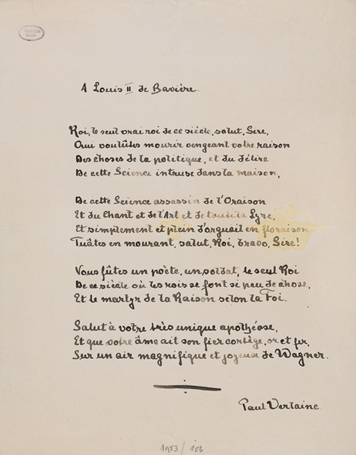 A Louis II de Bavière.
Roi, le seul vrai roi de ce siècle, salut, Sire,
Qui voulûtes mourir vengeant votre raison
Des choses de la politique, et du délire
De cette Science intruse dans la maison,
De cette Science assassin de l'Oraison
Et du Chant et de l'Art et de toute la Lyre,
Et simplement et plein d'orgueil en floraison
Tuâtes en mourant, salut, Roi, bravo, Sire!
Vous fûtes un poète, un soldat, le seul Roi
De ce siècle où les rois se font si peu de chose,
Et le martyr de la Raison selon la Foi.
Salut à votre très unique apothéose,
Et que votre âme ait son fier cortège, or et fer,
Sur un air magnifique et joyeux de Wagner.
Paul Verlaine
1953 / 106